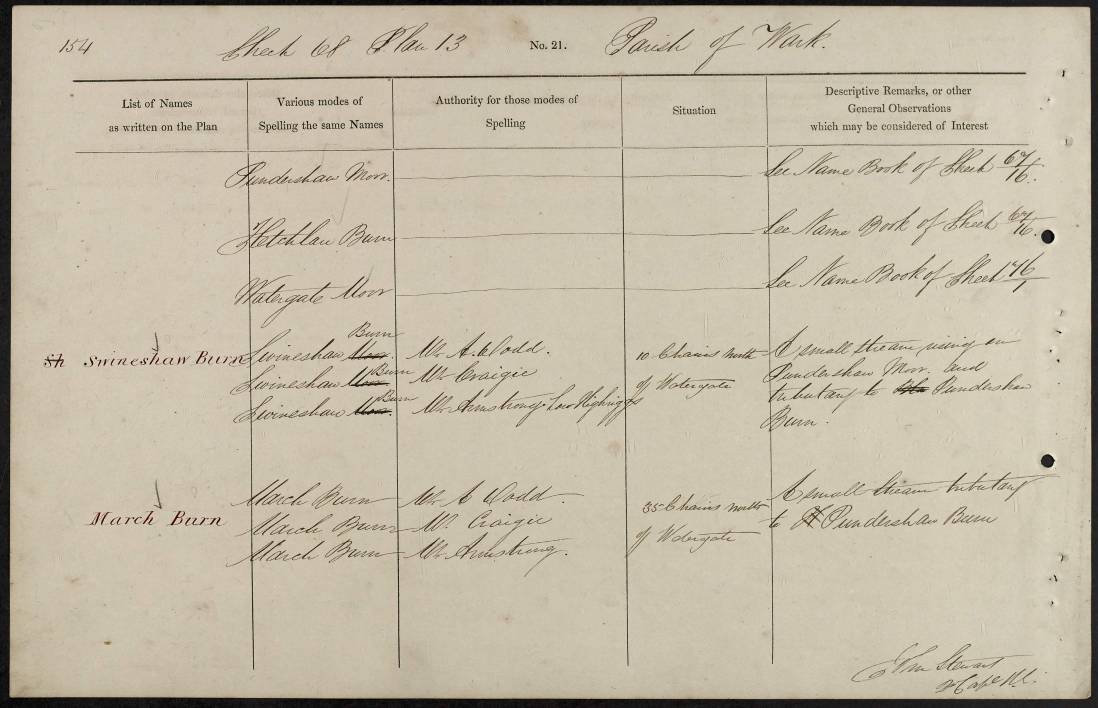 154 Sheet 68 Plan 13 No. 21. Parish of Wark.
List of Names
as written on the Plan
Various modes of
Spelling the same Names
Authority for those modes of
Spelling
Situation
Descriptive Remarks, or other
General Observations
which may be considered of Interest
Pundershaw Moor. See Name Book of Sheet 67/16.
Hetchlaw Burn See Name Book of Sheet 67/16.
Watergate Moor See Name Book of Sheet 76/1
Burn
Sh Swineshaw Burn Swineshaw Moor. Mr. A. Dodd. 10 Chains north A small stream rising on
Burn
Swineshaw Moor Mr Craigie of Watergate Pundershaw Moor. and
Burn
Swineshaw Moor. Mr Armstrong Low Highriggs tributary to Pundershaw
Burn.
March Burn March Burn Mr A Dodd. 35 Chains north A small Stream tributary
March Burn Mr. Craigie of Watergate to Pundershaw Burn
March Burn Mr Armstrong.
Stewart